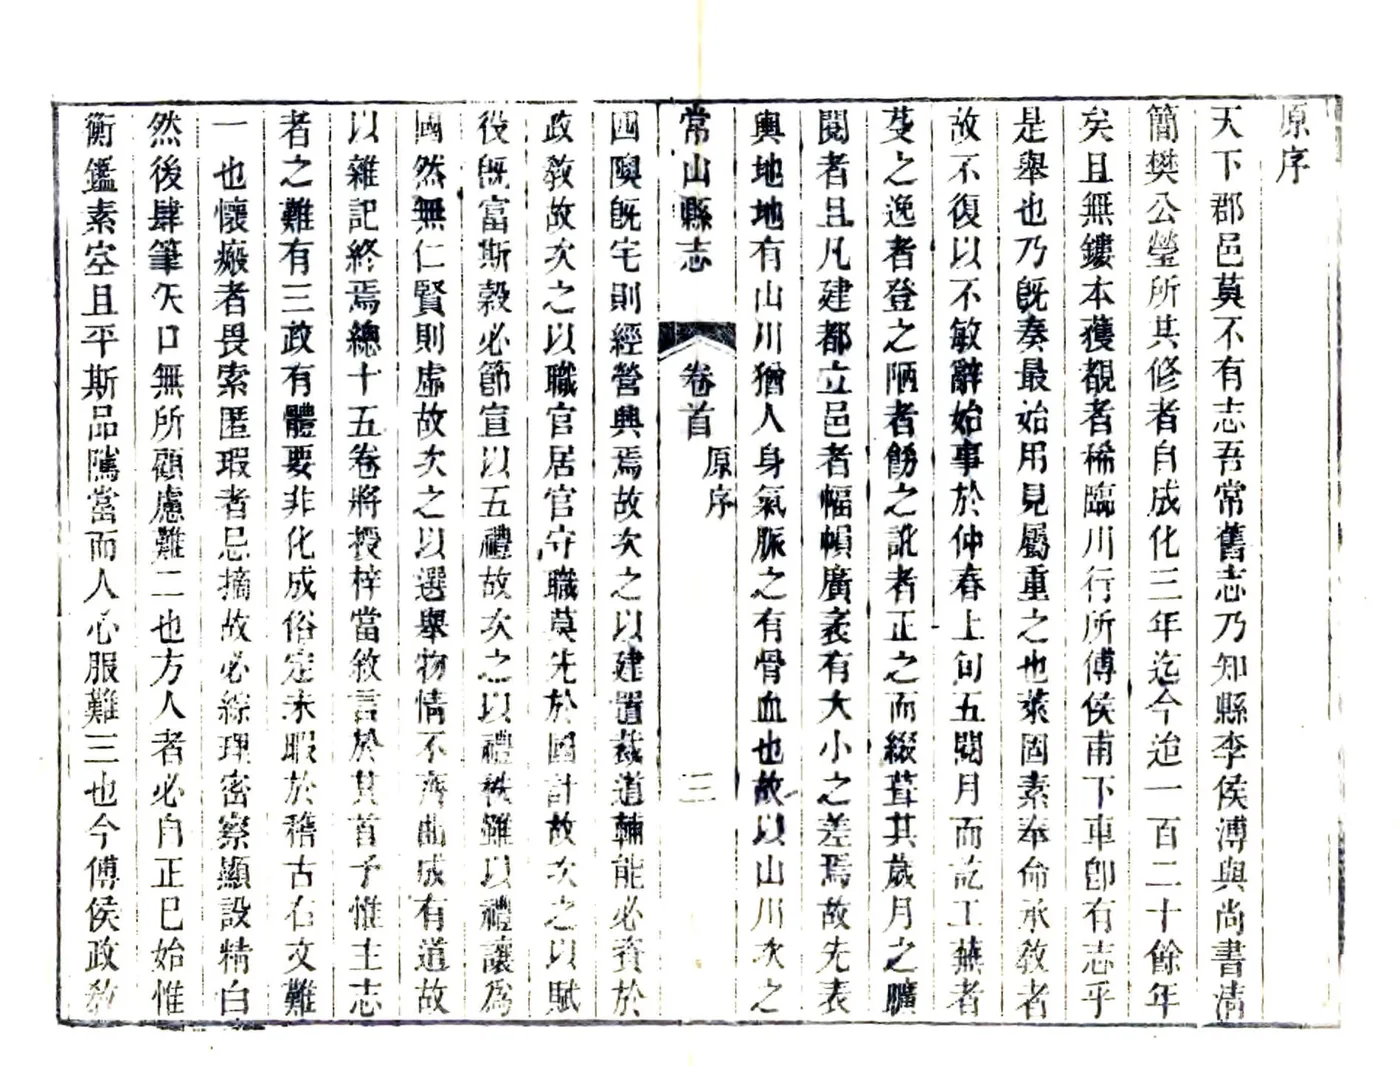 原序
天下郡邑莫不有志吾常舊志乃知縣李侯溥與尚書清
簡樊公瑩所其修者自成化三年迄今迨一百二十餘年
矣且無鏤本獲覩者稀臨川行所傅侯甫下車卽有志乎
是舉也乃旣奏最始用見屬重之也萊固素奉命承敎者
故不復以不敏辭始事於仲春上旬五閱月而訖工蕪者
芟之逸者登之陋者飭之訛者正之而綴葺其歲月之曠
閱者且凡建都立邑者幅幀廣袤有大小之差焉故先表
輿地地有山川猶人身氣脈之有骨血也故以山川次之
常山縣志
卷首
原序
三
四隩旣宅則經營興焉故次之以建置裁道輔能必資於
政敎故次之以職官居官守職莫先於國計故次之以賦
役旣富斯穀必節宣以五禮故次之以禮秩雖以禮讓爲
國然無仁賢則虛故次之以選舉物情不齊曲成有道故
以雜記終焉總十五卷將授梓當敘言於其首予惟主志
者之難有三政有體要非化成俗定未暇於稽古右文難
一也懷瘢者畏索匿瑕者忌摘故必綜理密察顯設精白
然後肆筆矢口無所顧慮難二也方人者必自正巳始惟
衡鑑素空且平斯品隲當而人心服難三也今傅侯政敎